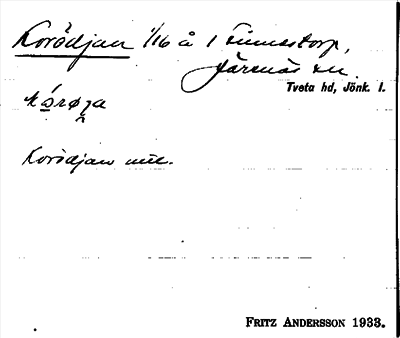 Korödjan 1/16 å 1 Finnestorp,
Järsnäs sn
Tveta hd, Jönk. l.
Korödjan mil.
FRITZ ANDERSSON 1933.